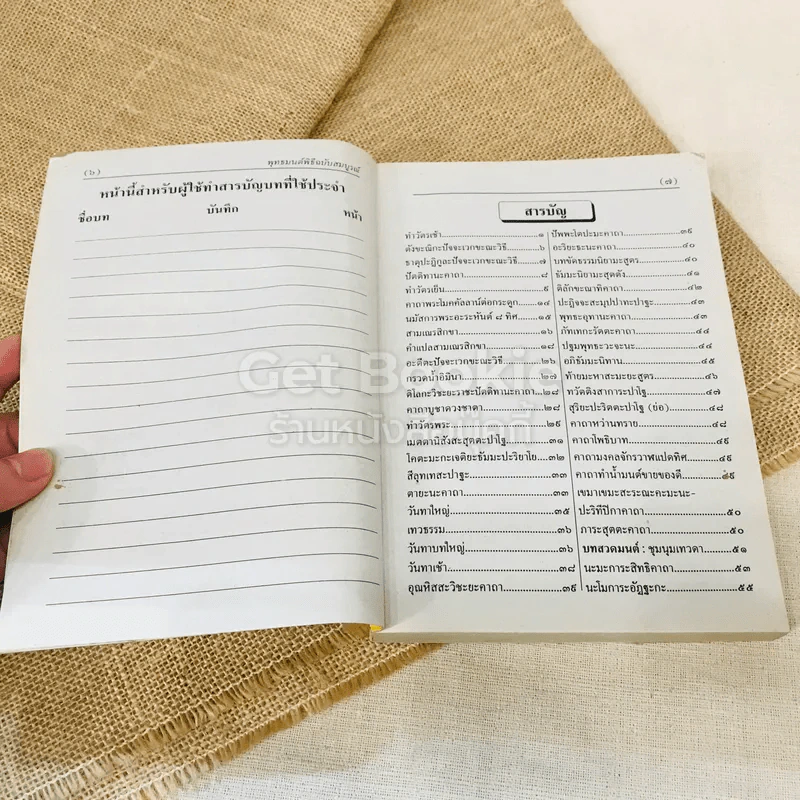 (๖) พุทธมนต์พิธีฉบับสมบูรณ์
หน้านี้สำหรับผู้ใช้ทำสารบัญบทที่ใช้ประจำ
ชื่อบท บันทึก หน้า
(๗)
สารบัญ
ทำวัตรเช้า............๑
ตังขะณิกะปัจจะเวกขะณะวิธี............๖
ธาตุปะฏิกูละปัจจะเวกขะณะวิธี............๗
ปัตติทานะคาถา............๘
ทำวัตรเย็น............๙
คาถาพระโมคคัลลาน์ต่อกระดูก............๑๔
นมัสการพระอะระหันต์ ๘ ทิศ............๑๕
สามเณรสิกขา............๑๖
คำแปลสามเณรสิกขา............๑๘
อะตีตะปัจจะเวกขะณะวิธี............๒๖
กรวดน้ำอิมินา............๒๗
ติโลกะวิชะยะราชะปัตติทานะคาถา............๒๘
คาถาบูชาดวงชาตา............๒๘
ทำวัตรพระ............๒๙
เมตตานิสังสะสุตตะปาโฐ............๓๑
โคตะมะกะเจติยะธัมมะปะริยาโย............๓๒
สีลุทเทสะปาฐะ............๓๓
ตายะนะคาถา............๓๓
วันทาใหญ่............๓๕
เทวธรรม............๓๖
วันทาบทใหญ่............๓๖
วันทาเช้า............๓๘
อุณหิสสะวิชะยะคาถา............๓๙
ปัพพะโตปะมะคาถา............๓๙
อะริยะธะนะคาถา............๔๐
บทขัดธรรมนิยามะสูตร............๔๐
ธัมมะนิยามะสุตตัง............๔๑
ติลักขะณาทิคาถา............๔๒
ปะฏิจจะสะมุปปาทะปาฐะ............๔๓
พุทธะอุทานะคาถา............๔๓
ภัทเทกะรัตตะคาถา............๔๔
ปฐมพุทธะวะจะนะ............๔๔
อภิธัมมะนิทาน............๔๕
ท้ายมะหาสะมะยะสูตร............๔๖
ทวัตติงสาการะปาโฐ............๔๗
สุริยะปะริตตะปาโฐ (ย่อ)............๔๘
คาถาหว่านทราย............๔๘
คาถาโพธิบาท............๔๙
คาถามงคลจักรวาฬแปดทิศ............๔๙
คาถาทำน้ำมนต์ขายของดี............๔๙
เขมาเขมะสะระณะคะมะนะ-
ปะริทีปิกาคาถา............๕๐
ภาระสุตตะคาถา............๕๐
บทสวดมนต์ : ชุมนุมเทวดา............๕๑
นะมะการะสิทธิคาถา............๕๓
นะโมการะอัฏฐะกะ............๕๕
Get Bookie
ร้านหนังสือเก็ตบุ๊คกี้